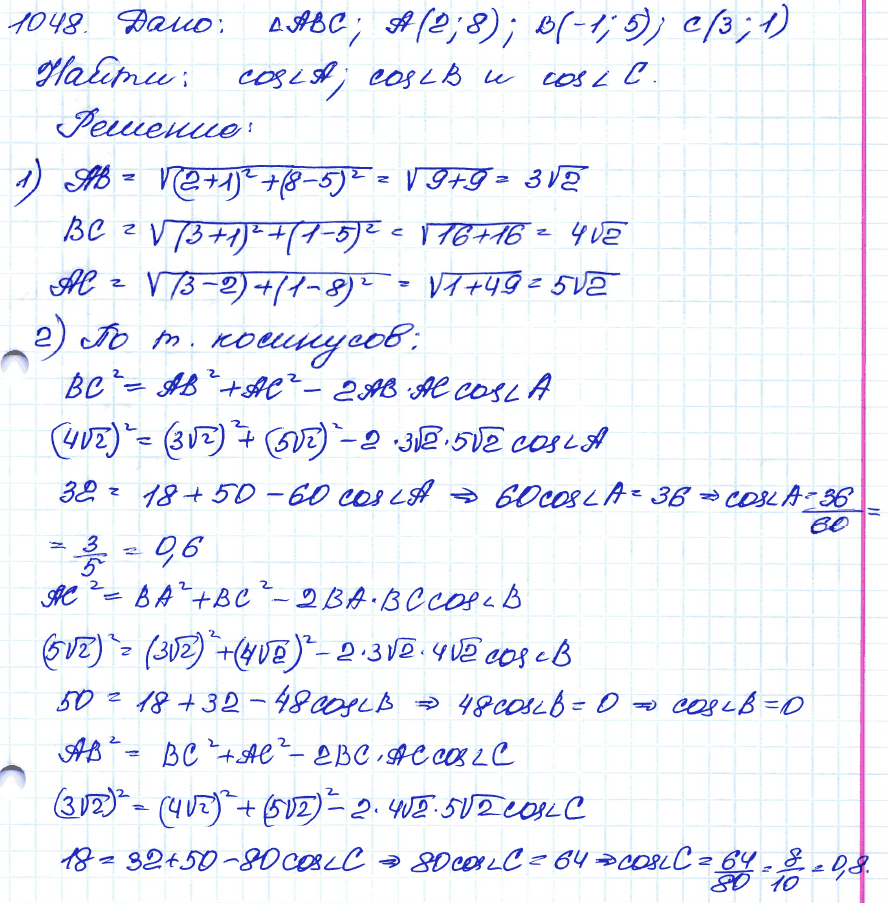 1048. Дано: △ABC; A(2;8); B(-1;5); C(3;1)
Найти: cos∠A; cos∠B и cos∠C.
Решение:
1) AB = √((2+1)²+(8-5)²) = √(9+9) = 3√2
BC = √((3+1)²+(1-5)²) = √(16+16) = 4√2
AC = √((3-2)+(1-8)²) = √(1+49) = 5√2
2) По т. косинусов:
BC² = AB²+AC² - 2AB·AC cos∠A
(4√2)² = (3√2)² + (5√2)² - 2·3√2·5√2 cos∠A
32 = 18+50-60 cos∠A ⇒ 60cos∠A = 36 ⇒ cos∠A = 36/60 =
= 3/5 = 0,6
AC² = BA²+BC² - 2BA·BC cos∠B
(5√2)² = (3√2)²+(4√2)² - 2·3√2·4√2 cos∠B
50 = 18+32-48cos∠B ⇒ 48cos∠B = 0 ⇒ cos∠B = 0
AB² = BC²+AC² - 2BC·AC cos∠C
(3√2)² = (4√2)² + (5√2)² - 2·4√2·5√2 cos∠C
18 = 32+50-80cos∠C ⇒ 80cos∠C = 64 ⇒ cos∠C = 64/80 = 8/10 = 0,8.